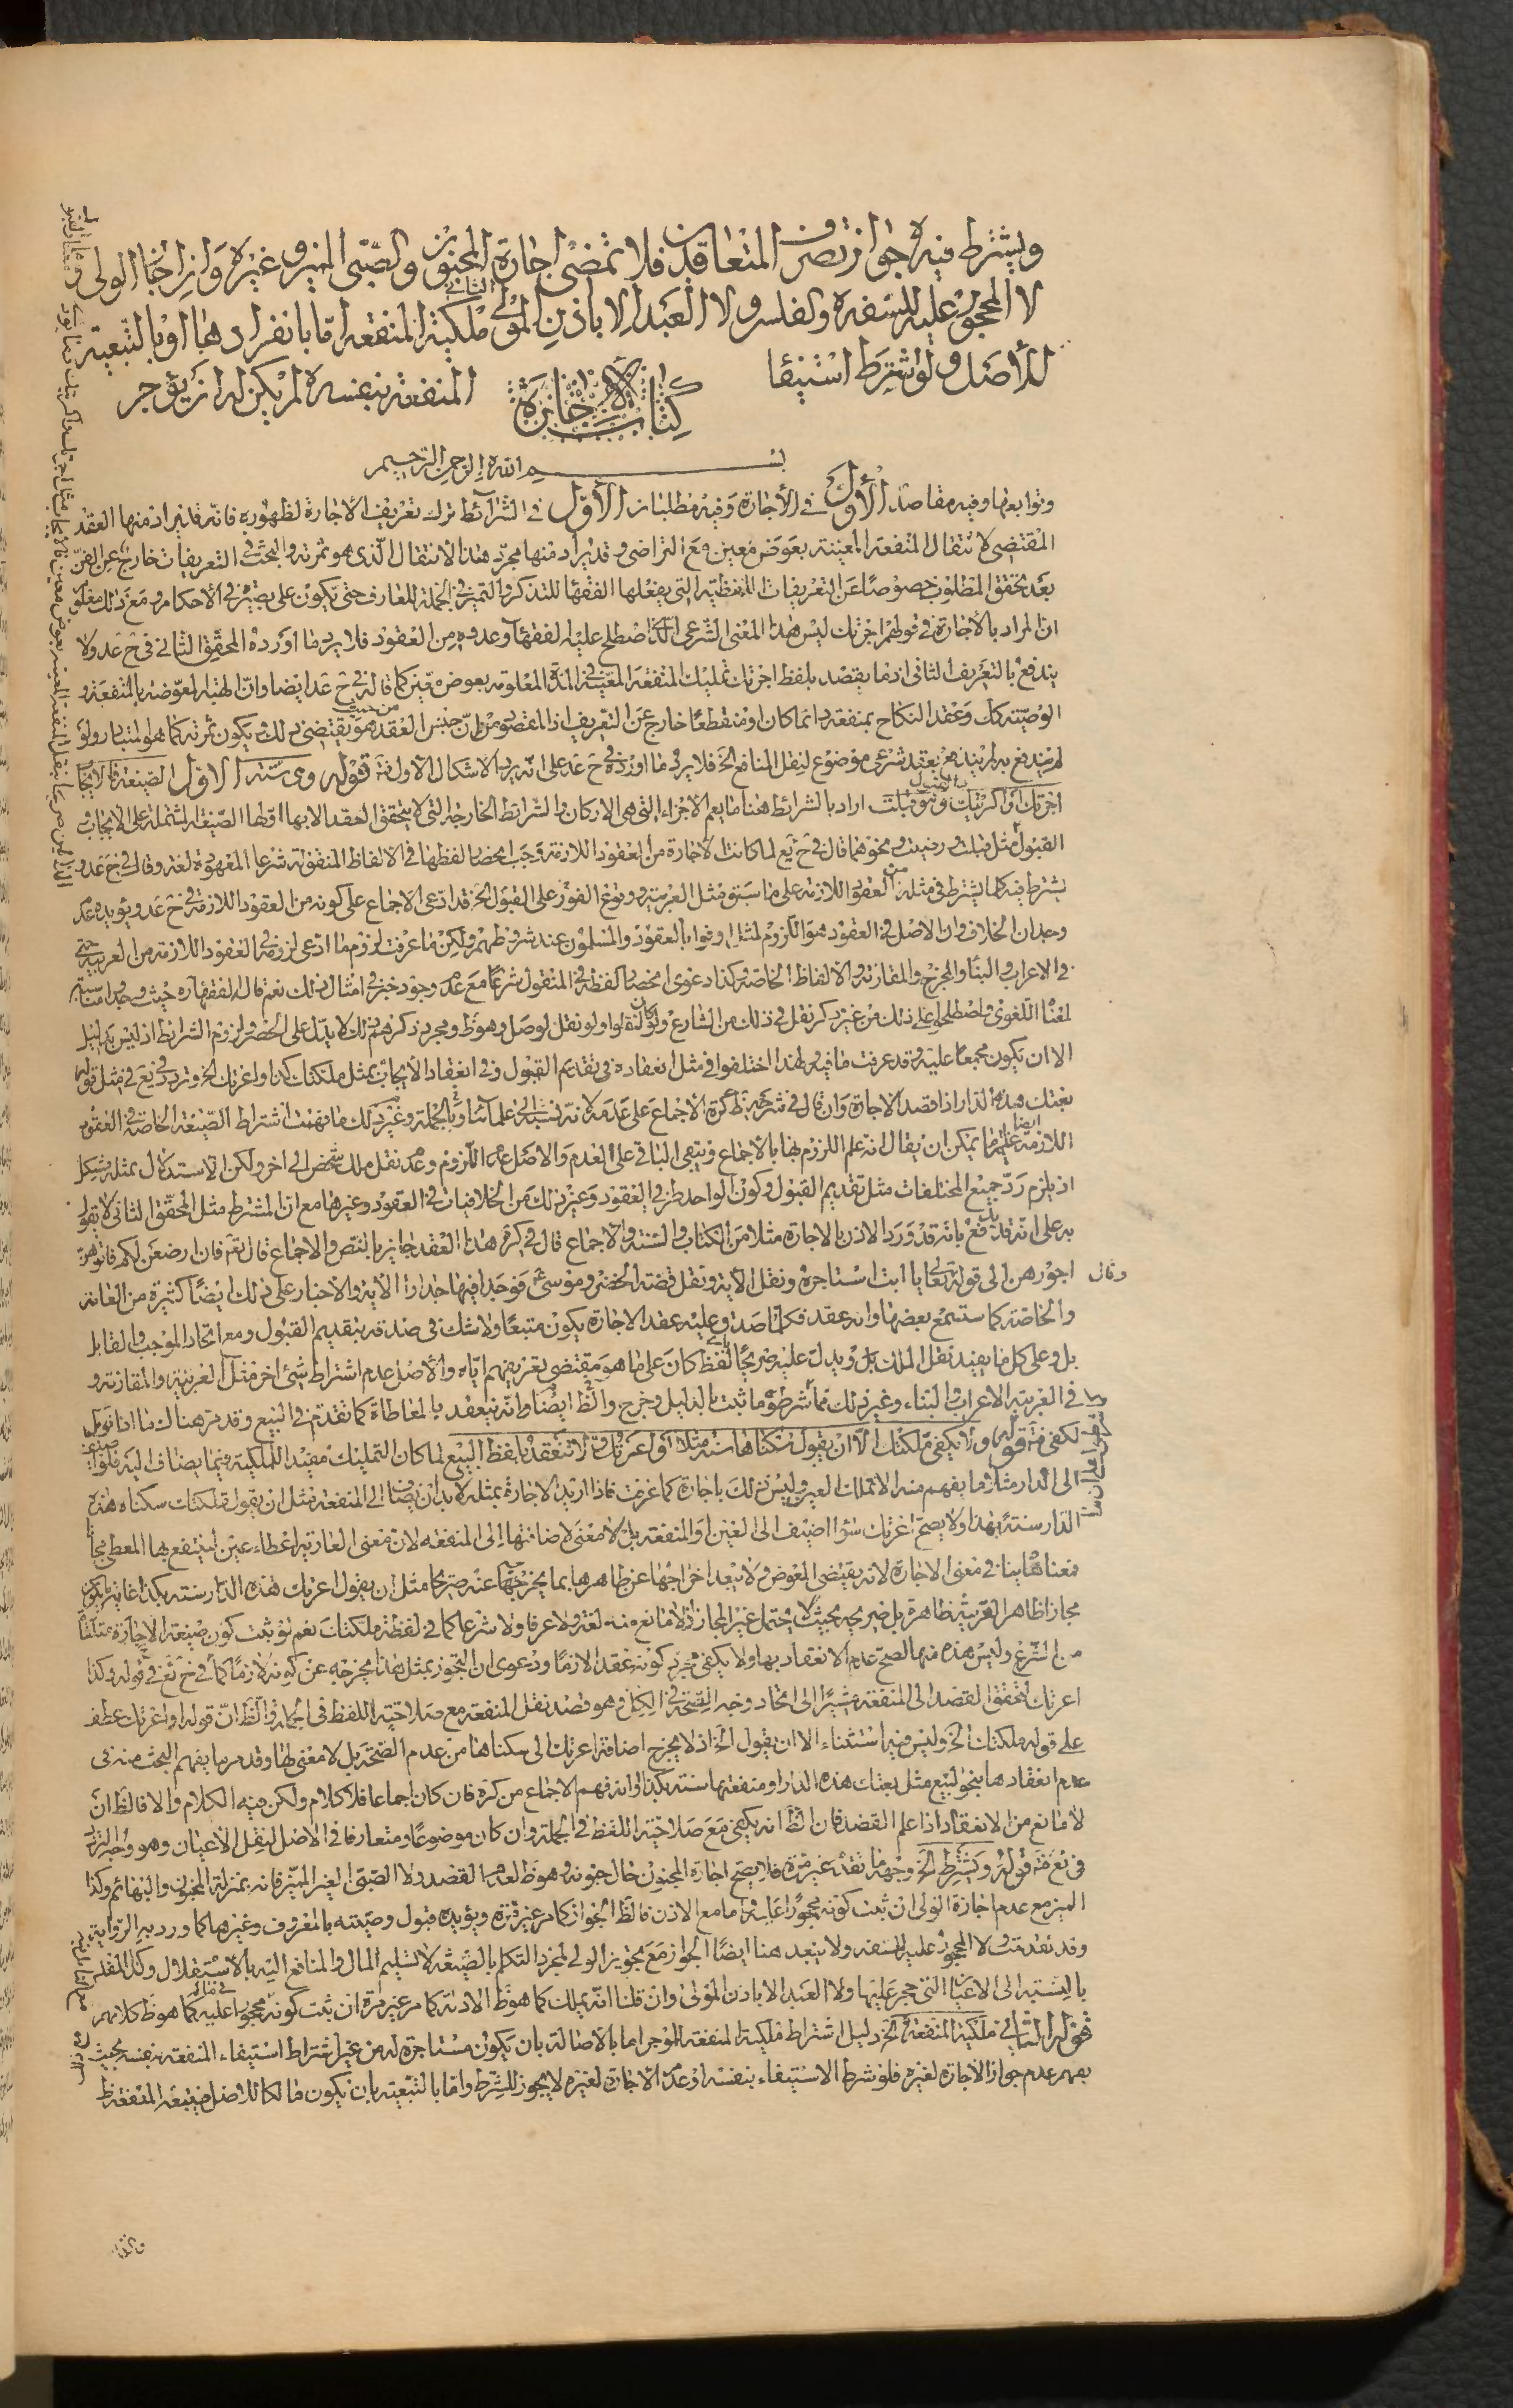 ويشترط فيه جواز تصرف المتعاقدين فلا تمضى اجارة المجنون والصّبى المميز وغيره وان اجاز الولى و
لا المحجور عليه للسّفه والفلس ولا العبد الا باذن المولى الثانى ملكيّة المنفعة امّا بانفرادها او بالتّبعية
للأصل ولو شرط استيفا
كتاب الاجارة
المنفعة بنفسه لم يكن له ان يؤجر
بسم الله الرحمن الرحيم
وتوابعها وفيه مقاصد الأول فى الأجارة وفيه مطلبان الأوّل فى الشرائط ترك تعريف الاجارة لظهوره فانّه قد يراد منها العقد
المقتضى لانتقال المنفعة المعينة بعوض معين مع التراضى وقد يراد منها مجرّد هذا الانتقال الّذى هو ثمرته والبحث فى التعريفات خارج عن الفنّ
بعد تحقق المطلوب خصوصًا عن التعريفات اللفظيّة التى يفعلها الفقها للتذكر والتميز فى الجملة للعارف حتى يكون على بصيرة فى الأحكام ومع ذلك معلوم
ان المراد بالأجارة فى قولهم اجرتك ليس هذا المعنى الشّرعى الّذى اصطلح عليه الفقهاء وعدوه من العقود فلا يرد ما أورده المحقّق الثانى فى ح عد ولا
يندفع بالتعريف الثانى اذ ما يقصد بلفظ اجرتك تمليك المنفعة المعيّنة فى المدّة المعلومة بعوض معين كما قاله فى ح عد ايضا وانّ الهبة المعوّضة بالمنفعة و
الوصيّة كك وعقد النكاح بمنفعة دائما كان او منقطعًا خارج عن التّعريف اذ المقصود من انّ جنس العقد من حيث هو يقتضى ذلك ويكون ثمرته كما هو المتبادر ولو
لم يندفع به لم يندفع بعقد شرعى موضوع لنقل المنافع الخ فلا يرد ما اورده فى ح عد على انّه يرد الاشكال الاول فتأمل قوله وهى ستّة الاوّل الصّيغة فالايجاب
اجرتك او اكريتك والقبول وهو قبلت اراد بالشرائط هنا ما يعم الاجزاء التى هى الاركان والشرائط الخارجة التى لا يتحقق العقد الا بها اوّلها الصّيغة المشتملة على الايجاب
القبول مثل قبلت ورضيت ونحوهما قال فى ح يع لما كانت الاجارة من العقود اللازمة وجب انحصار لفظها فى الالفاظ المنقولة شرعا المعهودة لغة وقال فى ح عد و
يشترط فيه كلما يشترط فى مثله من العقود اللازمة على ما سبق مثل العربيّة ووقوع الفور على القبول الخ قد ادعى الاجماع على كونه من العقود اللازمة فى ح عد ويؤيده عدم
وجدان الخلاف وان الاصل فى العقود هو اللزوم لمثل اوفوا بالعقود والمسلمون عند شروطهم ولكن ما عرفت لزوم ما ادّعى لزومه فى العقود اللازمة من العربيّة حتى
فى الاعراب والبنا والمخرج والمقارنة والالفاظ الخاصّة وكذا دعوى انحصار لفظه فى المنقول شرعًا مع عدم وجود خبر فى امثال ذلك نعم قال الفقهاء حيث وجدوا مناسبته
لمعناه اللّغوى واصطلحوا على ذلك من غير ذكر نقل فى ذلك من الشارع ولو كان لنقلوا ولو نقل لوصل وهو ظ ومجرد ذكرهم ذلك لا يدل على الحصر ولزوم الشرائط اذ ليس بدليل
الا ان يكون مجمعا عليه وقد عرفت ما فيه ولهذا اختلفوا فى مثل انعقاده فى تقديم القبول وفى انعقاد الايجاب بمثل ملكتك كذا واعرتك الخ وتردد فى يع فى مثل قوله
بعتك هذه الدار اذا قصد الاجارة وان قال فى شرحه ظ كرة الاجماع على عدمه لانه نسب الى علمائنا وبالجملة وغير ذلك ما فهمت اشتراط الصّيغة الخاصّة فى العقود
اللازمة ايضا غاية ما يمكن ان يقال انه علم اللزوم بها بالاجماع وبقى الباقى على العدم والاصل عدم اللزوم وعدم نقل ملك شخص الى اخر ولكن الاستدلال بمثله مشكل
اذ يلزم ردّ جميع المختلفات مثل تقديم القبول وكون الواحد طرفى العقود وغير ذلك من الخلافيات فى العقود وغيرها مع ان المشترط مثل المحقّق الثانى لا يقول
به على انّه قد يدفع بانّه قد ورد الاذن بالاجارة مثلا من الكتاب والسّنّة والاجماع قال فى كرة هذا العقد جايز بالنص والاجماع قال تعم فان ارضعن لكم فاتوهنّ
اجورهن الى قوله تعالى يا ابت استاجره ونقل الآية ونقل قصّة الخضر وموسى عم فوجدا فيها جدارا الآية والاخبار على ذلك ايضًا كثيرة من العامّة وقال
والخاصّة كما ستسمع بعضها وانه عقد فكلما صدق عليه عقد الاجارة يكون متبعًا ولا شك فى صدقه بتقديم القبول ومع اتحاد الموجب والقابل
بل وعلى كل ما يفيد نقل الملك بل ويدل عليه صريحًا باى لفظ كان على ما هو مقتضى تعريفهم ايّاه والأصل عدم اشتراط شىء اخر مثل العربيّة والمقارنة و
فى العربيّة الاعراب والبناء وغير ذلك ممّا شرطوه ما ثبت بالدليل وخرج والظّ ايضًا وانّه ينعقد بالمعاطاة كما تقدّم فى البيع وقد مرّ هناك ما افا
لكفى فتأمل قوله ولا يكفى ملكتك الّا ان يقول سكناها سنة مثلا او اعرتك ولا تنعقد بلفظ البيع لما كان التمليك مفيد للملكية فيما يضاف اليه فلو اضيفت
الى الدار مثلا ما يفهم منه الا تملك العين وليس ذلك باجارة كما عرفت فاذا اريد الاجارة بمثله لا بد ان يضاف الى المنفعة مثل ان يقول ملكتك سكناه هذه
الدّار سنة بهذا ولا يصحّ اعرتك سوا اضيف الى العين او المنفعة بل لا معنى لاضافتها الى المنفعة لانّ معنى العارية اعطاء عين لينتفع بها المعطى مجانًا
فمعناها ينافى معنى الاجارة لانه يقتضى المعوض ولا يبعد اخراجها عن ظاهرها بما يخرجها عنه صريحا مثل ان يقول اعرتك هذه الدار سنة بكذا غايته يكون
مجازا ظاهرا لقرينة ظاهرة بل صريحه بحيث لا يحتمل غير المجاز اذ لا مانع منه لغة ولا عرفا ولا شرعا كما فى لفظة ملكتك نعم لو ثبت كون صيغة الاجارة متلقّاة
من الشّرع وليس هذه منها لصحّ عدم الانعقاد بها ولا يكفى مجرد كونه عقدا لازمًا ودعوى ان التجوز بمثل هذا مخرجه عن كونه لازمًا كما فى ح يع فى قوله وكذا
اعرتك لتحقق القصد الى المنفعة مشيرًا الى اتحاد وجه الصّحة فى الكل وهو قصد نقل المنفعة مع صلاحيّة اللفظ فى الجملة والظّ انّ قوله او اعرتك عطف
على قوله ملكتك الخ وليس فيه استثناء الا ان يقول الخ اذ لا يخرج اضافة اعرتك الى سكناها من عدم الصّحة بل لا معنى لها وقد مر ما يفهم البحث منه فى
عدم انعقادها بنحو البيع مثل بعتك هذه الدار او منفعتها سنة بكذا وانه فهم الاجماع من كرة فان كان اجماعا فلا كلام ولكن فيه الكلام والا فالظّ ان
لا مانع من الانعقاد اذا علم القصد فان الظّ انه يكفى مع صلاحيّة اللفظ فى الجملة وان كان موضوعًا ومتعارفا فى الاصل لنقل الاعيان وهو وجه التردد
فى يع فتأمل قوله ويشترط الخ وجهه ما تقدّم غير مرّة فلا يصحّ اجارة المجنون حال جنونه وهو ظ لعدم القصد ولا الصّبى الغير المميّز فانه بمنزلة المجنون والبهائم وكذا
المميز مع عدم اجازة الولى ان ثبت كونه محجورًا عليه واما مع الاذن فالظّ الجواز كما مر غير مرّة ويؤيده قبول وصيّته بالمعروف وغيرها كما ورد به الرّواية
وقد تقدّمت ولا المحجور عليه للسّفه ولا يبعد هنا ايضًا الجواز مع تجويز الولى لمجرد التكلم بالصّيغة لا تسليم المال والمنافع اليه بالاستقلال وكذا المفلس
بالنسبة الى الاعيان التى حجر عليها ولا العبد الا باذن المولى وان قلنا انّه يملك كما هو ظ الادلة كما مر غير مرّة ان ثبت كونه محجورا عليه فى ماله كما هو ظ كلامهم
قوله الثانى ملكيّة المنفعة الخ دليل اشتراط ملكيّة المنفعة للموجر اما بالأصالة بان يكون مستاجرة له من غير اشتراط استيفاء المنفعة بنفسه بحيث
يفهم عدم جواز الاجارة لغيره فلو شرط الاستيفاء بنفسه او عدم الاجارة لغيره لا يجوز للشرط واما بالتبعيّة بان يكون مالكا للاصل فيتبعه المنفعة ظ